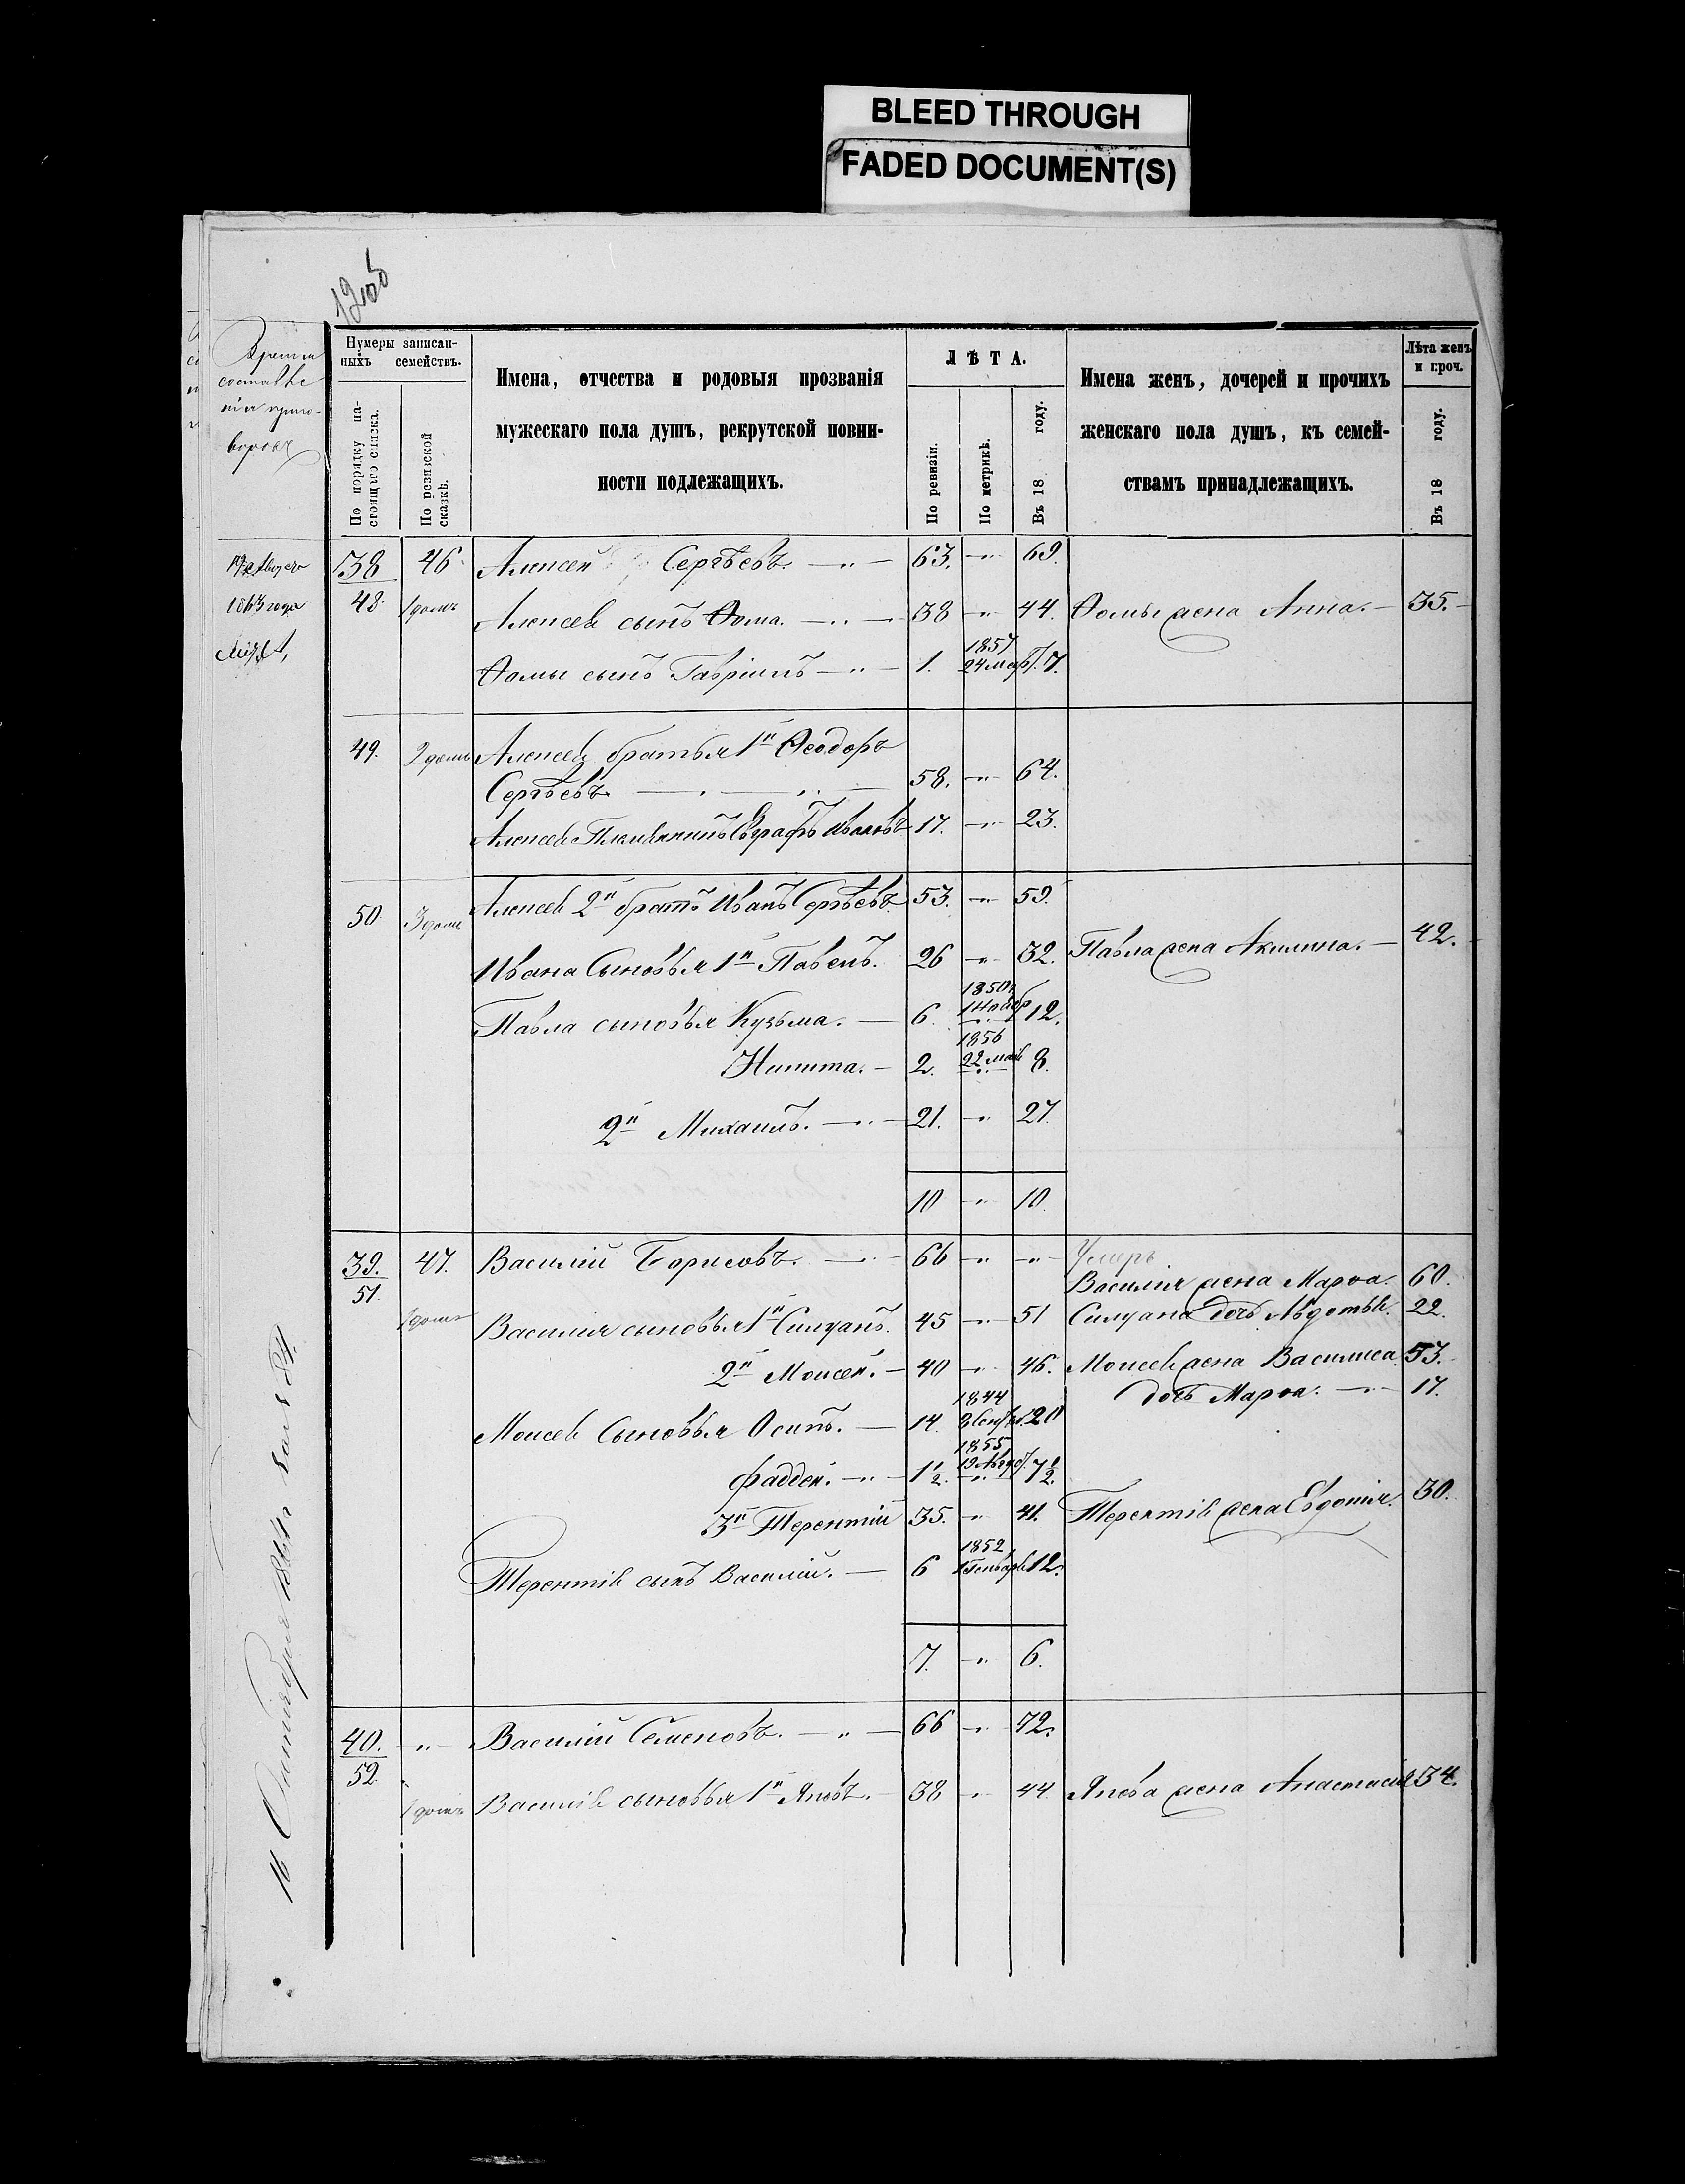 BLEED THROUGH
FADED DOCUMENT(S)
Время
составле
нія приго-
вора
Нумеры записан-
ныхъ семействъ.
По порядку на-
стоящаго списка.
По ревизской
сказкѣ.
Имена, отчества и родовыя прозванія
мужескаго пола душъ, рекрутской повин-
ности подлежащихъ.
ЛѢТА.
По ревизіи.
По метрикѣ.
Въ 18 году.
Имена женъ, дочерей и прочихъ
женскаго пола душъ, къ семей-
ствамъ принадлежащихъ.
Лѣта женъ
и проч.
Въ 18 году.
38 46 Алексей Сергѣевъ. — " — 63. — " — 69.
1863 года
48. 1 домъ Алексея сынъ Ѳома. — " — 38 — " — 44. Ѳомы жена Анна. — 35. —
Ѳомы сынъ Гавріилъ — " — 1. 1857 24 март. 7.
49. 2 домъ Алексея братья 1й Ѳеодоръ
Сергѣевъ — " — 58. — " — 64.
Алексея Племянникъ Евграфъ Ивановъ 17. — " — 23.
50 3 домъ Алексея 2й братъ Иванъ Сергѣевъ 53. — " — 59.
Ивана Сыновья 1й Павелъ. 26 — " — 32. Павла жена Акилина. — 42.
Павла сыновья Кузьма. — 6. 1850 12.
Никита. — 2. 1856 22 мая 8.
2й Михаилъ. — " — 21. — " — 27.
10 — " — 10.
39. 47. Василій Борисовъ. — " — 66 — " — " — Умеръ
51
Василія жена Марѳа. 60.
1 домъ Василия сыновья 1й Силуанъ. 45 — " — 51 Силуана дочь Авдотья. 22.
2й Моисей. — 40 — " — 46. Моисея жена Василиса 53.
дочь Марѳа. — " — 17.
Моисея Сыновья Осипъ. — 14. 1844 20
Фаддей. — " — 1½. 1855 7½.
3й Терентій 35. — " — 41. Терентія жена Евдокия. 30.
Терентія сынъ Василій. — 6 1852 Генваря 12.
7. — " — 6.
40. — " — Василій Семеновъ. — " — 66 — " — 72.
52
1 домъ Василія сыновья 1й Яковъ. — 38 — " — 44. Якова жена Анастасія 34.